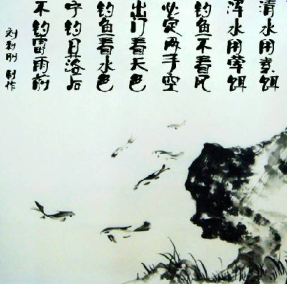 清水用素饵
浑水用荤饵
钓鱼不看风
必定两手空
出门看天色
钓鱼看水色
宁钓日落后
不钓雷雨前